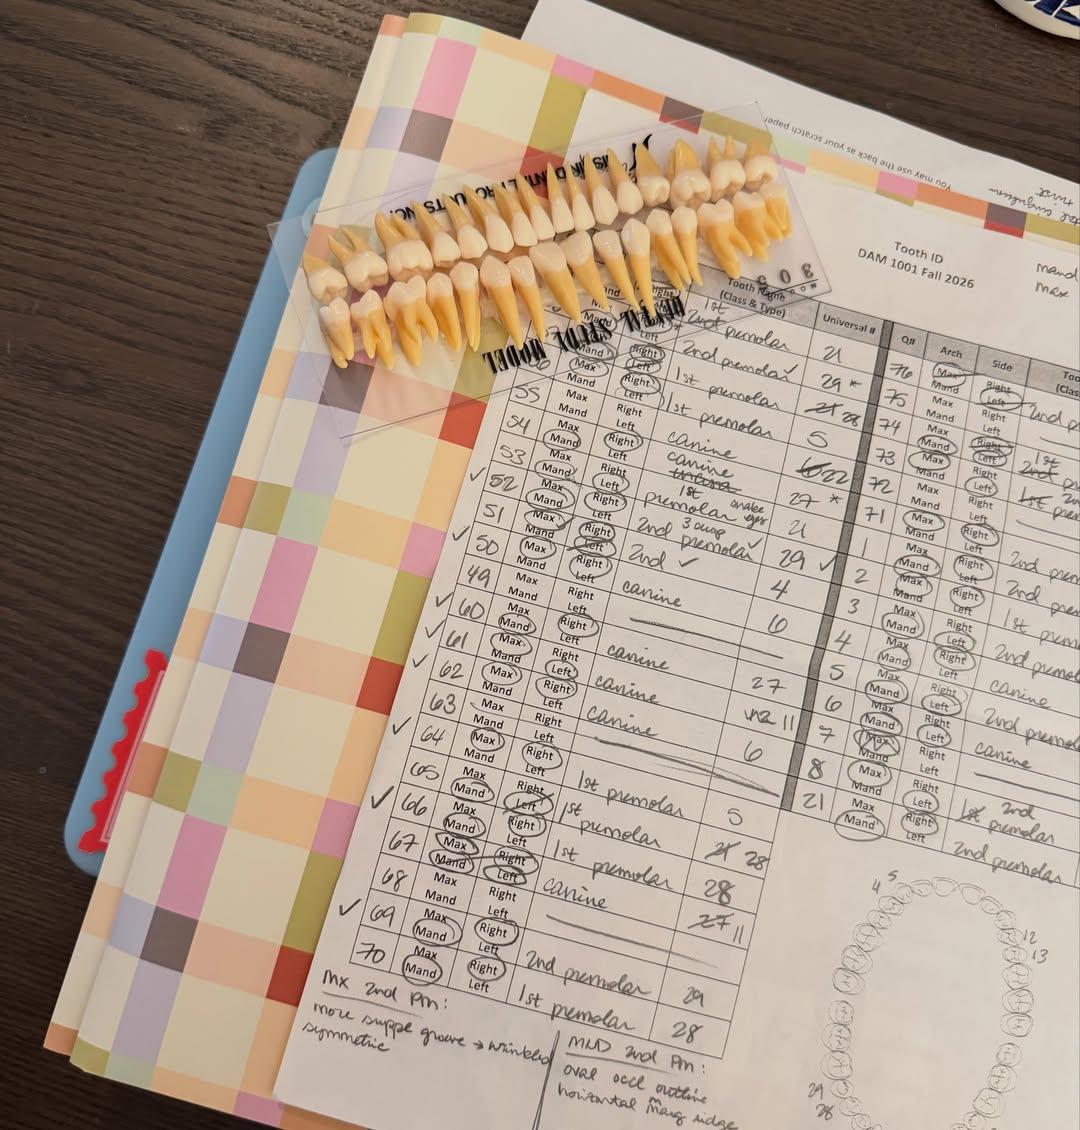 You may use the back as your scratch paper
DENTAL STUDY MODEL
MODEL 305
Tooth ID
DAM 1001 Fall 2026
mand
max
Tooth Name (Class & Type) Universal #
Q# Arch Side
1st premolar 21
2nd premolar ✓ 29 *
Max Mand Right Left 1st premolar 28
55 Max Mand Right Left 1st premolar 5
54 Max Mand Right Left canine 22
53 Max Mand Right Left canine 27 *
✓ 52 Max Mand Right Left 1st premolar snake eyes 21
51 Max Mand Right Left 2nd premolar 3 cusp ✓ 29 ✓
✓ 50 Max Mand Right Left 2nd ✓ 4
49 Max Mand Right Left canine 6
✓ 60 Max Mand Right Left
✓ 61 Max Mand Right Left canine 27
✓ 62 Max Mand Right Left canine 11
63 Max Mand Right Left canine 6
✓ 64 Max Mand Right Left
65 Max Mand Right Left 1st premolar 5
✓ 66 Max Mand Right Left 1st premolar 28
67 Max Mand Right Left 1st premolar 28
68 Max Mand Right Left canine 11
✓ 69 Max Mand Right Left
70 Max Mand Right Left 2nd premolar 29
1st premolar 28
76 Max Mand Right Left 2nd
75 Max Mand Right Left
74 Max Mand Right Left 1st
73 Max Mand Right Left
72 Max Mand Right Left
71 Max Mand Right Left
1 Max Mand Right Left 2nd
2 Max Mand Right Left 2nd
3 Max Mand Right Left 1st
4 Max Mand Right Left 2nd
5 Max Mand Right Left canine
6 Max Mand Right Left 2nd
7 Max Mand Right Left canine
8 Max Mand Right Left
21 Max Mand Right Left 2nd premolar
2nd premolar
MX 2nd PM:
more supple groove → wrinkled
symmetric
MND 2nd PM:
oval occl outline
horizontal marg ridge
4 5
12
13
29
28